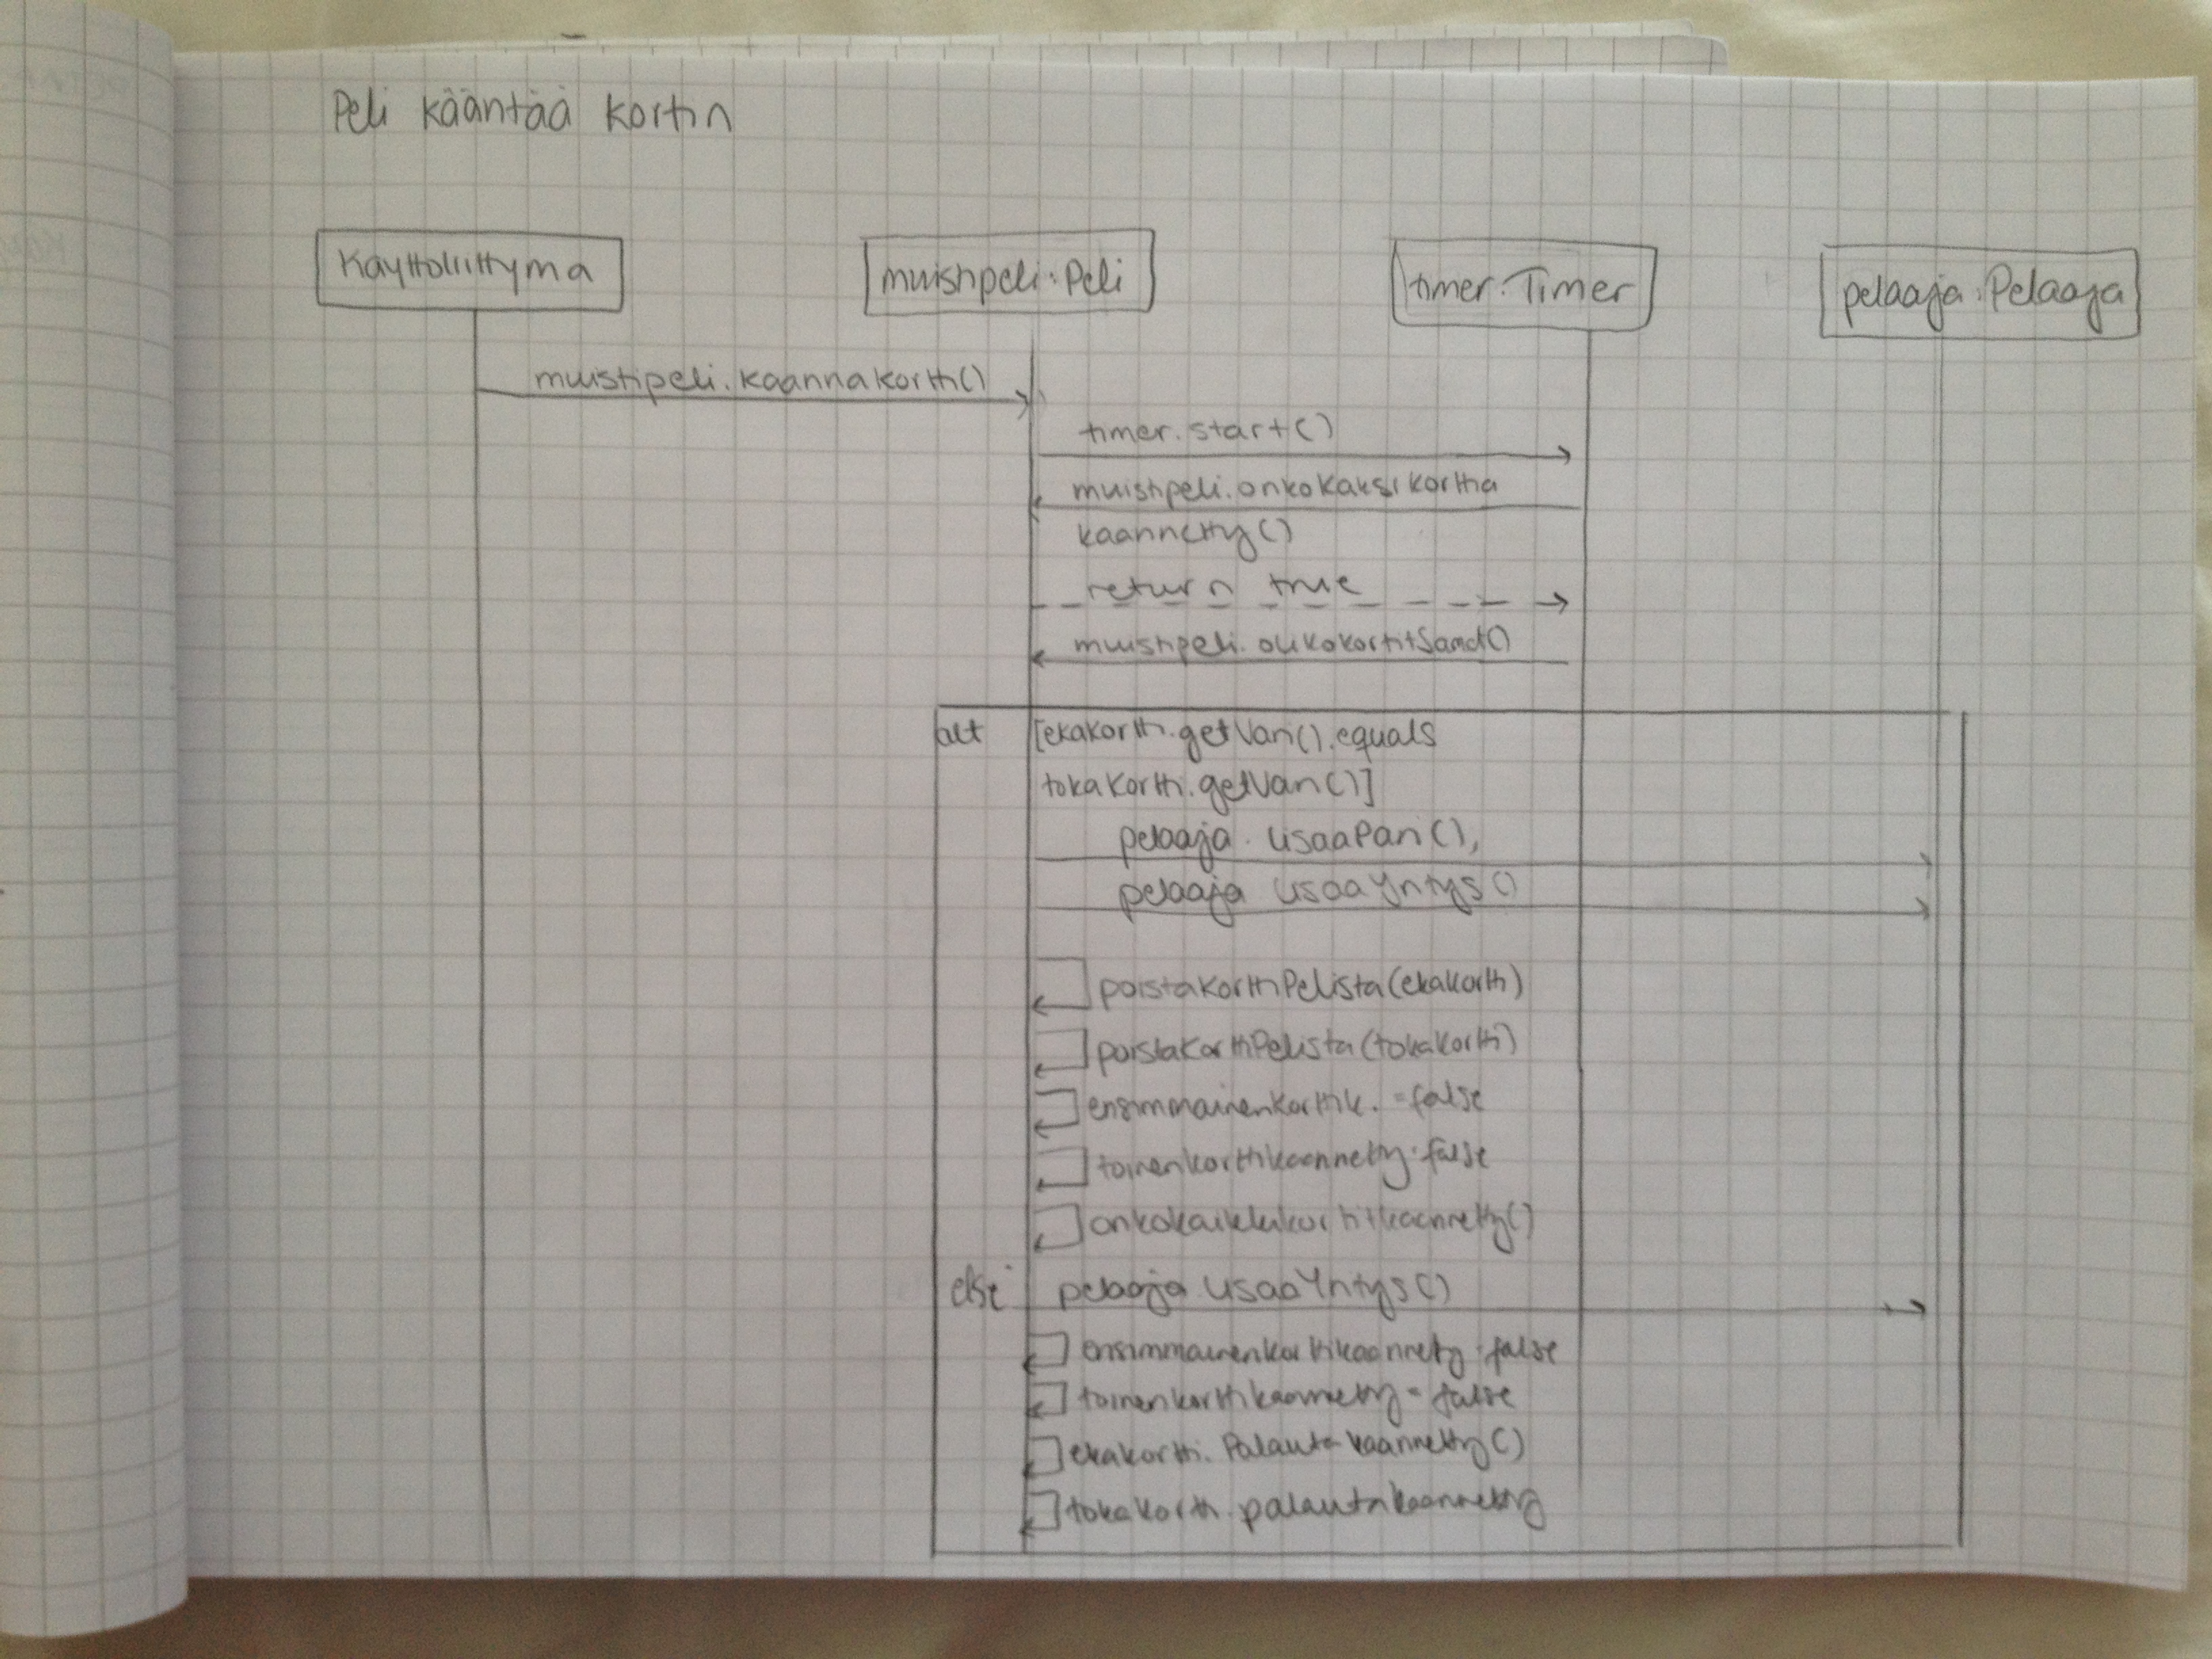 Peli kääntää kortin
Kayttoliittyma
muistipeli:Peli
timer:Timer
pelaaja:Pelaaja
muistipeli.kaannakortti()
timer.start()
muistipeli.onkokaksikorttia
kaannetty()
return true
muistipeli.olikokortitSamat()
alt
[ekakortti.getVari().equals
tokakortti.getVari()]
pelaaja.lisaaPari();
pelaaja lisaaYritys()
poistakorttiPelista(ekakortti)
poistakorttiPelista(tokakortti)
ensimmainenkorttik.=false
toinenkorttikaannetty=false
onkokaikkikortitkaannetty()
else
pelaaja.lisaaYritys()
ensimmainenkorttikaannetty=false
toinenkorttikaannetty=false
ekakortti.Palautakaannetty()
tokakortti.palautakaannetty